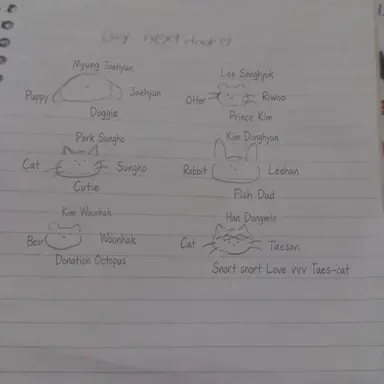 Boy next door?)
Myung Jaehyun
Puppy Jaehyun
Doggie
Lee Sanghyuk
Otter Riwoo
Prince Kim
Park Sungho
Cat Sungho
Cutie
Kim Donghyun
Rabbit Leehan
Fish Dad
Kim Woonhak
Bear Woonhak
Donation Octopus
Han Dongmin
Cat Taesan
Snort snort Love vvv Taes-cat